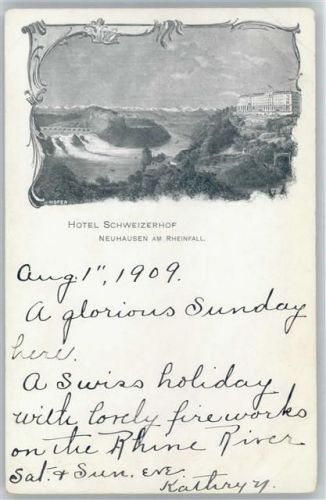 HOFER
HOTEL SCHWEIZERHOF
NEUHAUSEN AM RHEINFALL.
Aug. 1", 1909.
A glorious Sunday
here.
A Swiss holiday
with lovely fireworks
on the Rhine River
Sat. & Sun. eve
Kathryn.